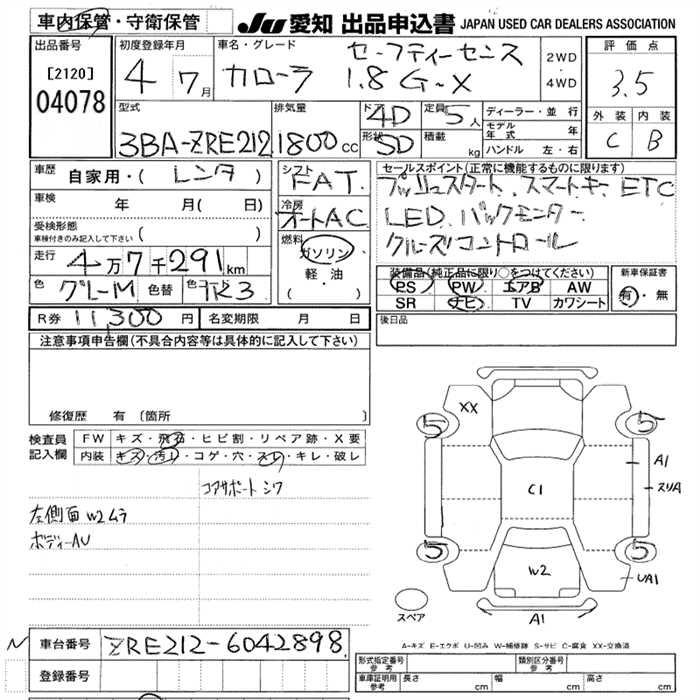 車内保管・守衛保管
JU 愛知 出品申込書 JAPAN USED CAR DEALERS ASSOCIATION
出品番号
[2120]
04078
初度登録年月
4 7月
車名・グレード
セーフティーセンス
カローラ 1.8 G-X
2WD
4WD
評価点
3.5
外装 内装
C B
型式
3BA-ZRE212
排気量
1800cc
ドア 4D
形状 SD
定員 5人
積載 kg
ディーラー・並行
モデル年式 年
ハンドル 左・右
車歴 自家用・(レンタ)
車検 年 月( 日)
受検形態
車検付きのみ記入して下さい ( )
走行 4万7千291km
色 グレーM 色替 色コード 1K3
シフト FAT
冷房 オートAC
燃料
ガソリン
軽・油
( ・ )
セールスポイント(正常に機能するものに限ります)
プッシュスタート、スマートキー、ETC
LED、バックモニター
クルーズコントロール
装備品(純正品に限り○をつけてください)
PS PW エアB AW
SR ナビ TV カワシート
新車保証書
有・無
R券 11,300円 名変期限 月 日
後日品
注意事項申告欄(不具合内容等は具体的に記入して下さい)
修復歴 有 〔箇所 〕
検査員記入欄
FW キズ・飛石・ヒビ割・リペア跡・X要
内装 キズ・汚レ・コゲ・穴・スレ・キレ・破レ
コアサポートシワ
左側面W2ムラ
ボディーAU
XX
5 5
A1
スリA
C1
5 5
W2
UA1
A1
スペア
N 車台番号 ZRE212-6042898
登録番号
A-キズ E-エクボ U-凹み W-補修跡 S-サビ C-腐食 XX-交換済
形式指定番号 参考
類別区分番号 参考
車庫証明用 参考 長さ cm 幅 cm 高さ cm